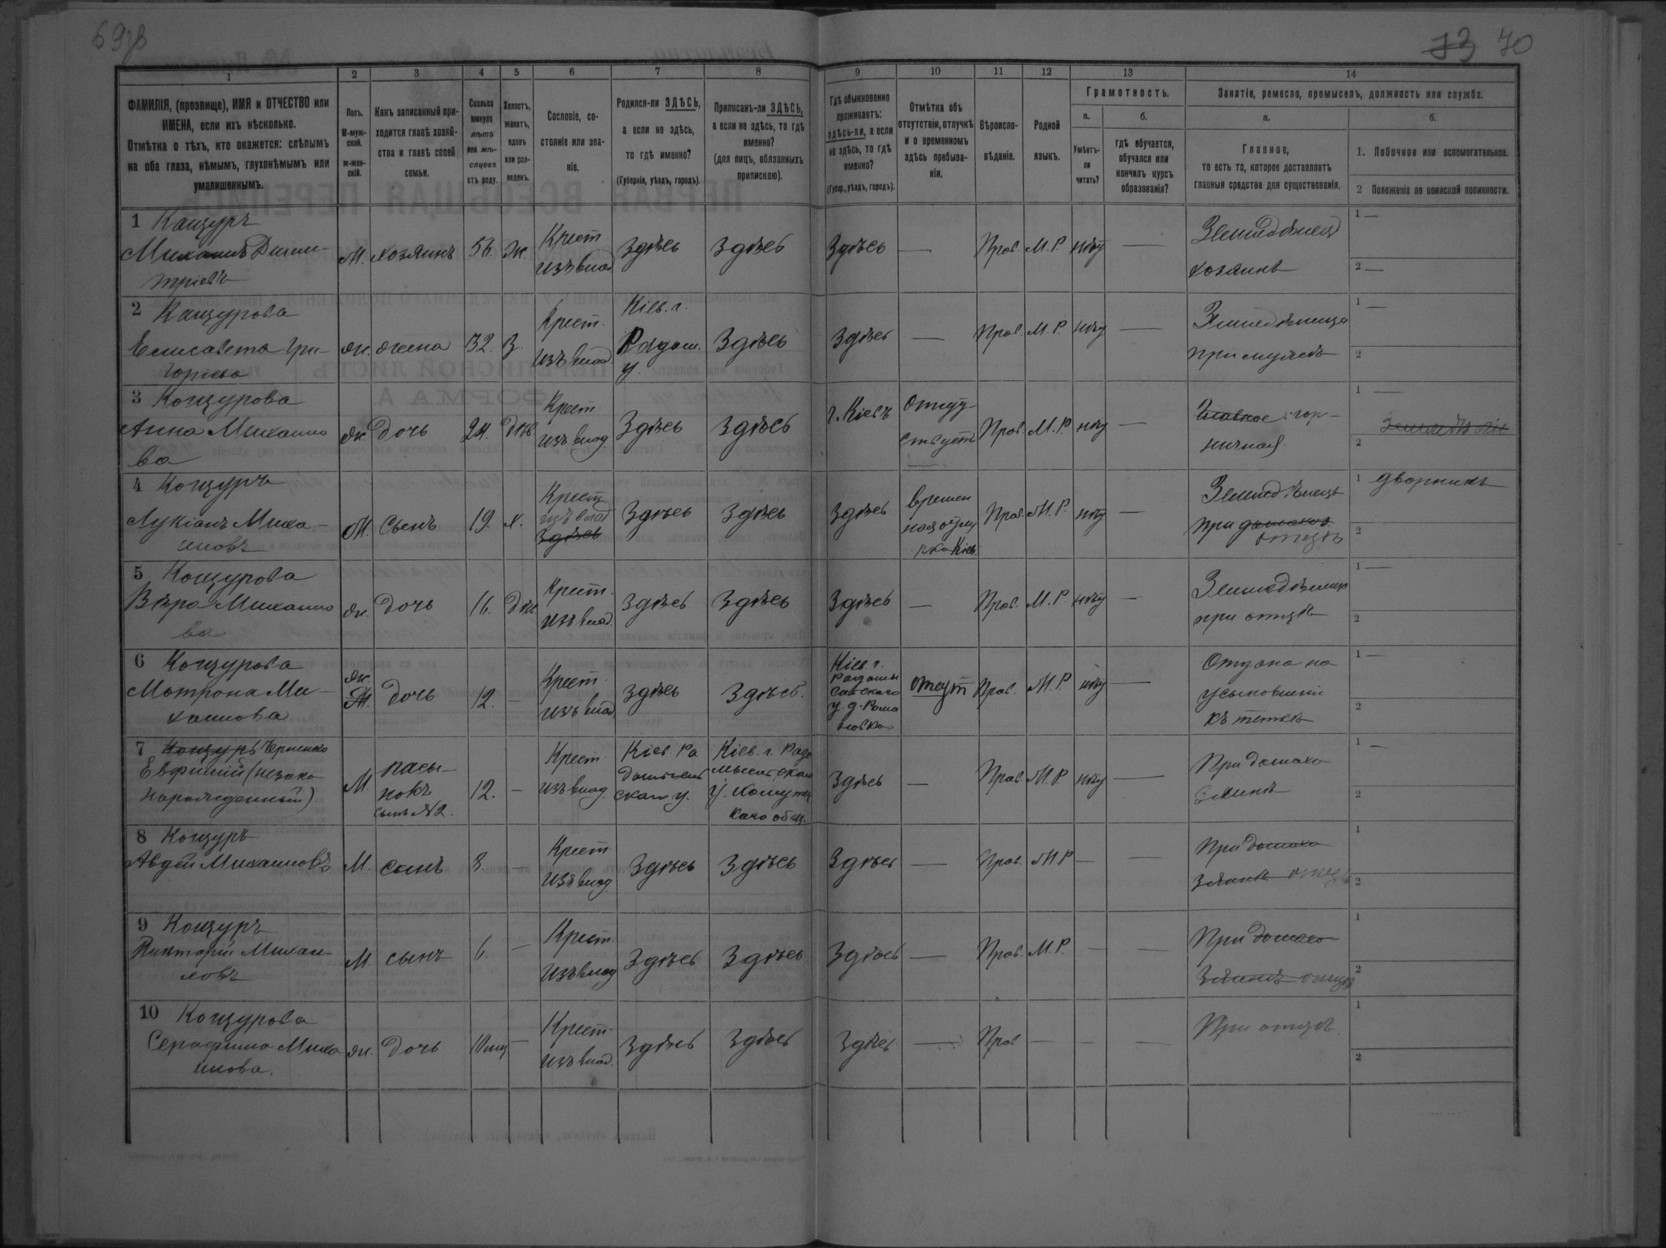 69об
33 70
1 2 3 4 5 6 7 8 9 10 11 12 13 14
ФАМИЛІЯ, (прозвище), ИМЯ и ОТЧЕСТВО или
ИМЕНА, если ихъ нѣсколько.
Отмѣтка о тѣхъ, кто окажется: слѣпымъ
на оба глаза, нѣмымъ, глухонѣмымъ или
умалишоннымъ.
Полъ.
М-муж-
ской.
ж-жен-
скій.
Какъ записанный при-
ходится главѣ хозяй-
ства и главѣ своей
семьи.
Сколько
минуло
лѣтъ
или мѣ-
сяцевъ
отъ роду.
Холостъ,
женатъ,
вдовъ
или раз-
веденъ.
Сословіе, со-
стояніе или зва-
ніе.
Родился-ли ЗДѢСЬ,
а если не здѣсь,
то гдѣ именно?
(Губернія, уѣздъ, городъ).
Приписанъ-ли ЗДѢСЬ,
а если не здѣсь, то гдѣ
именно?
(для лицъ, обязанныхъ
припискою).
Гдѣ обыкновенно
проживаетъ:
здѣсь-ли, а если
не здѣсь, то гдѣ
именно?
(Губер., уѣздъ, городъ).
Отмѣтка объ
отсутствіи, отлучкѣ
и о временномъ
здѣсь пребыва-
ніи.
Вѣроиспо-
вѣданіе.
Родной
языкъ.
Грамотность.
а.
Умѣетъ-
ли
читать?
б.
гдѣ обучается,
обучался или
кончилъ курсъ
образованія?
Занятіе, ремесло, промыселъ, должность или служба.
а.
Главное,
то есть то, которое доставляетъ
главныя средства для существованія.
б.
1. Побочное или вспомогательное.
2 Положеніе по воинской повинности.
1 Кацуръ
Михаилъ Дими-
тріевъ
М. хозяинъ 56. Ж.
Крест.
изъ влад.
Здѣсь Здѣсь Здѣсь — Прав. М.Р. нѣту —
Земледѣлецъ
хозяинъ
1 —
2 —
2 Кацурова
Елисавета Гри-
горьева
ж. жена 32. З.
Крест.
изъ влад.
Кіев. г.
Радом.
у.
Здѣсь Здѣсь — Прав. М.Р. нѣту —
Земледѣлица
при мужѣ
1 —
2
3 Коцурова
Анна Михаило
ва
ж. дочь 24. Дѣв.
Крест
изъ влад.
Здѣсь Здѣсь г. Кіевъ
Отсут
ствуетъ
Прав. М.Р. нѣту —
Главное гор-
ничная
1 —
2
4 Коцуръ
Лукіанъ Миха-
иловъ
М. Сынъ 19. х.
Крест
изъ влад
Здѣсь
Здѣсь Здѣсь Здѣсь
времен
ная отлу
чка Кіевъ
Прав. М.Р. нѣту —
Земледѣлецъ
при
отцѣ
1 дворникъ
2
5 Коцурова
Вѣра Михаило
ва
ж. дочь 16. Дѣв.
Крест.
изъ влад.
Здѣсь Здѣсь Здѣсь — Прав. М.Р нѣту —
Земледѣлица
при отцѣ
1 —
2
6 Коцурова
Матрона Ми-
хаилова
ж.
дочь 12. —
Крест.
изъ влад
Здѣсь Здѣсь.
Кіев г.
Радомы
сльскаго
у. д. Рома
новка
отсут Прав. М.Р. нѣту —
Отдана на
усыновленіе
къ теткѣ
1 —
2
7 Коцуръ Черненко
Евфимій (незако
норожденный)
М.
пасы-
нокъ
сынъ №2.
12. —
Крест.
изъ влад.
Кіев Ра
домысль
скаго у.
Кіев. г. Радо
мысльскаго
у.
каго общ.
Здѣсь — Прав М.Р нѣту —
При домохо
зяинѣ
1 —
2
8 Коцуръ
Авдѣй Михаиловъ
М. сынъ 8. —
Крест
изъ влад
Здѣсь Здѣсь Здѣсь — Прав. М.Р — —
При домохо
зяинѣ отцѣ
1
2
9 Коцуръ
Викторій Михаи
ловъ
М сынъ 6. —
Крест.
изъ влад
Здѣсь Здѣсь Здѣсь — Прав. М.Р. — —
При домохо
зяинѣ отцѣ
1
2
10 Коцурова
Серафима Миха
илова.
ж. дочь —
Крест.
изъ влад.
Здѣсь Здѣсь Здѣсь — Прав — — —
При отцѣ
1
2